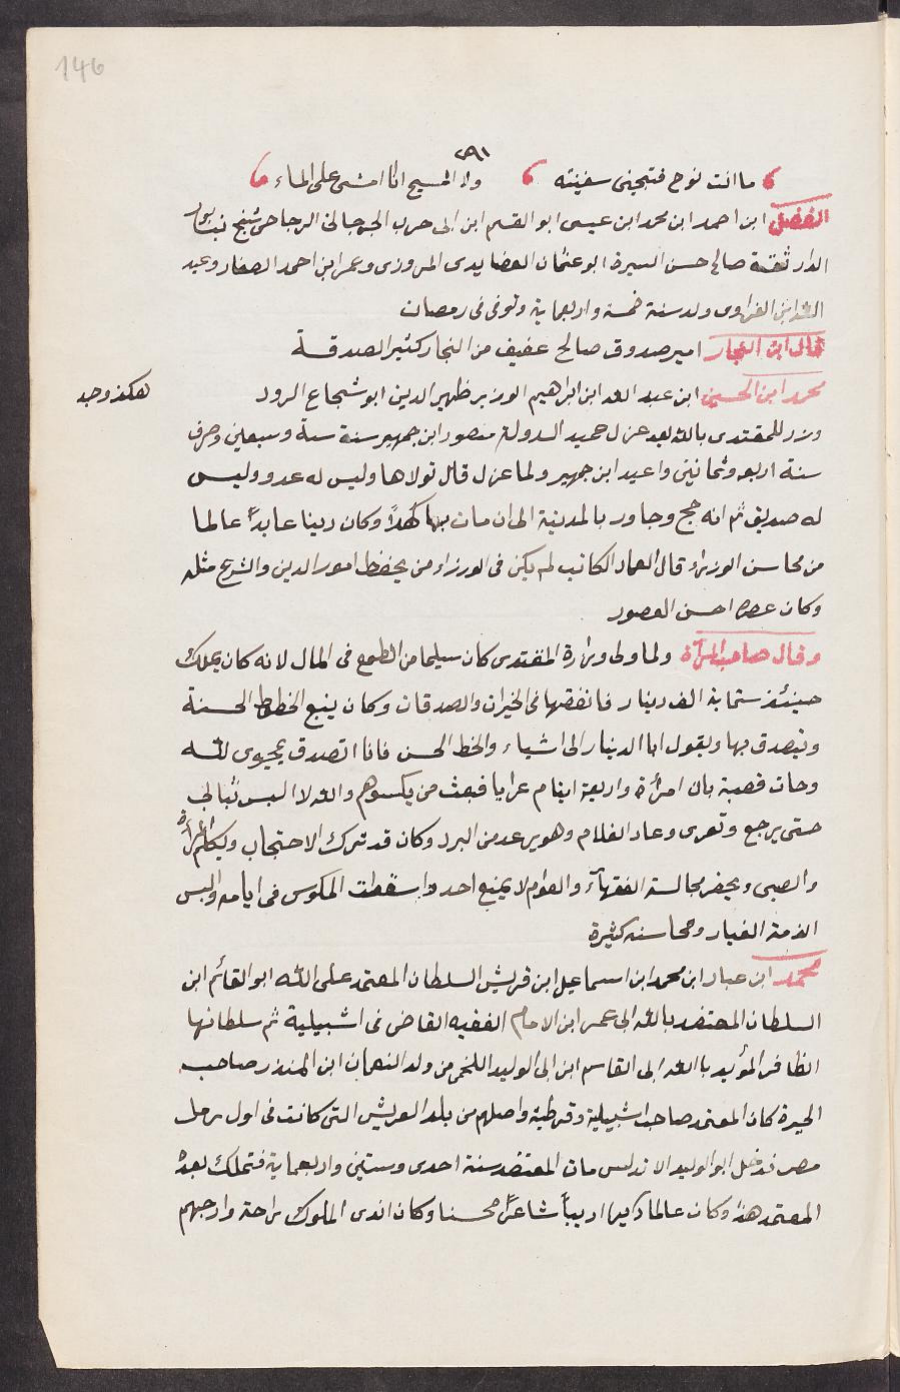 146
٢٩١
ما انت نوح فتنجينى سفينته ولا المسيح انا امشى على الماء
الفضل ابن احمد ابن محمد ابن عيسى ابو القسم ابن ابى حرب الجرجانى الزجاجى شيخ
ثقة صالح حسن السيرة ابو عثمان وعمر ابن احمد الصفار وعبد
الله ابن الفراوى ولد سنة خمسة واربعماية وتوفى فى رمضان
قال ابن النجار امير صدوق صالح عفيف من النجار كثير الصدقة
محمد ابن الحسين ابن عبد الله ابن ابراهيم الوزير ظهير الدين ابو شجاع الرود
هكذ وجد
وزر للمقتدى بالله بعد عزل حميد الدولة منصور ابن جهير سنة ستة وسبعين وصرف
سنة اربع وثمانين واعيد ابن جهير ولما عزل قال تولاها وليس له عدو وليس
له صديق ثم انه حج وجاور بالمدينة الى ان مات بها كهلاً وكان دينا عابداً عالما
من محاسن الوزراء قال العماد الكاتب لم يكن فى الوزراء من يحفظ امور الدين والشرع مثله
وكان عصره احسن العصور
وقال صاحب المرآة ولما ولى وزارة المقتدى كان سليما من الطمع فى المال لانه كان يملك
حينئذ ستماية الف دينار فانفقها فى الخيرات والصدقات وكان يبيع الخطوط الحسنة
ويتصدق بها ويقول انا الدينار الى اشياء والخط الحسن فانا اتصدق بمحبوبى لله
وجات قصة بان امرأة واربعة ايتام عرايا فبعث من يكسوهم والله لا البس ثيابى
حتى يرجع وتعرى وعاد الغلام وهو يرعد من البرد وكان قد ترك الاحتجاب ويكلم المرأة
والصبى ويحضر مجالسة الفقهآء والعوام لا يمنع احد واسقطت المكوس فى ايامه والبس
الذمة الغيار ومحاسنه كثيرة
محمد ابن عباد ابن محمد ابن اسماعيل ابن قريش السلطان المعتمد على الله ابو القائم ابن
السلطان المعتضد بالله ابى عمر ابن الامام الفقيه القاضى فى اشبيلية ثم سلطانها
الظافر المؤيد بالله ابى القاسم ابن ابى الوليد اللخمى من ولد النعمان ابن المنذر صاحب
الحيرة كان المعتمد صاحب اشبيلية وقرطبة واصلهم من بلد العريش التى كانت فى اول رمل
مصر فدخل ابو الوليد الاندلس مات المعتضد سنة احدى وستين واربعماية فتملك بعده
المعتمد هذا وكان عالما ذكيا اديباً شاعراً محسنا وكان اندى الملوك راحة وارحبهم